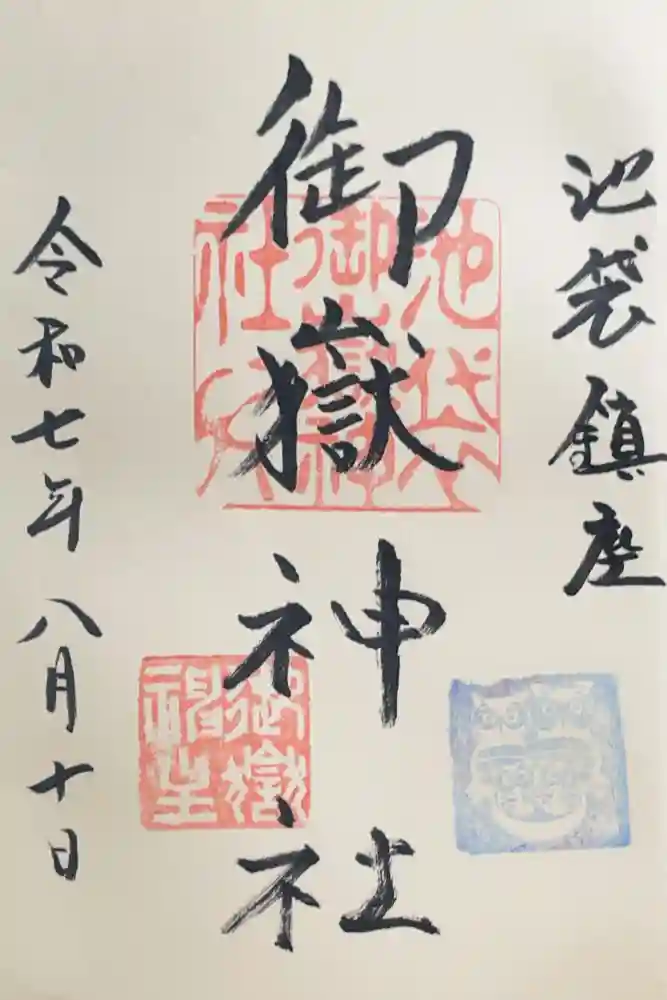 池袋鎮座
御嶽神社
令和七年八月十日
池袋
御嶽神
社之印